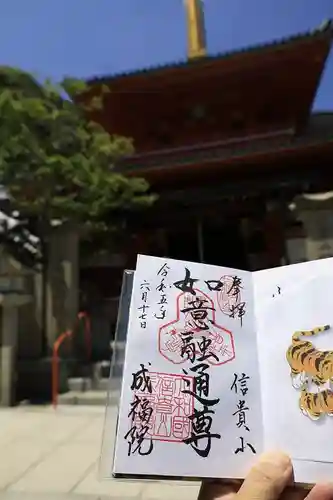 奉拝
信貴山
如意融通尊
令和五年
六月十七日
成福院